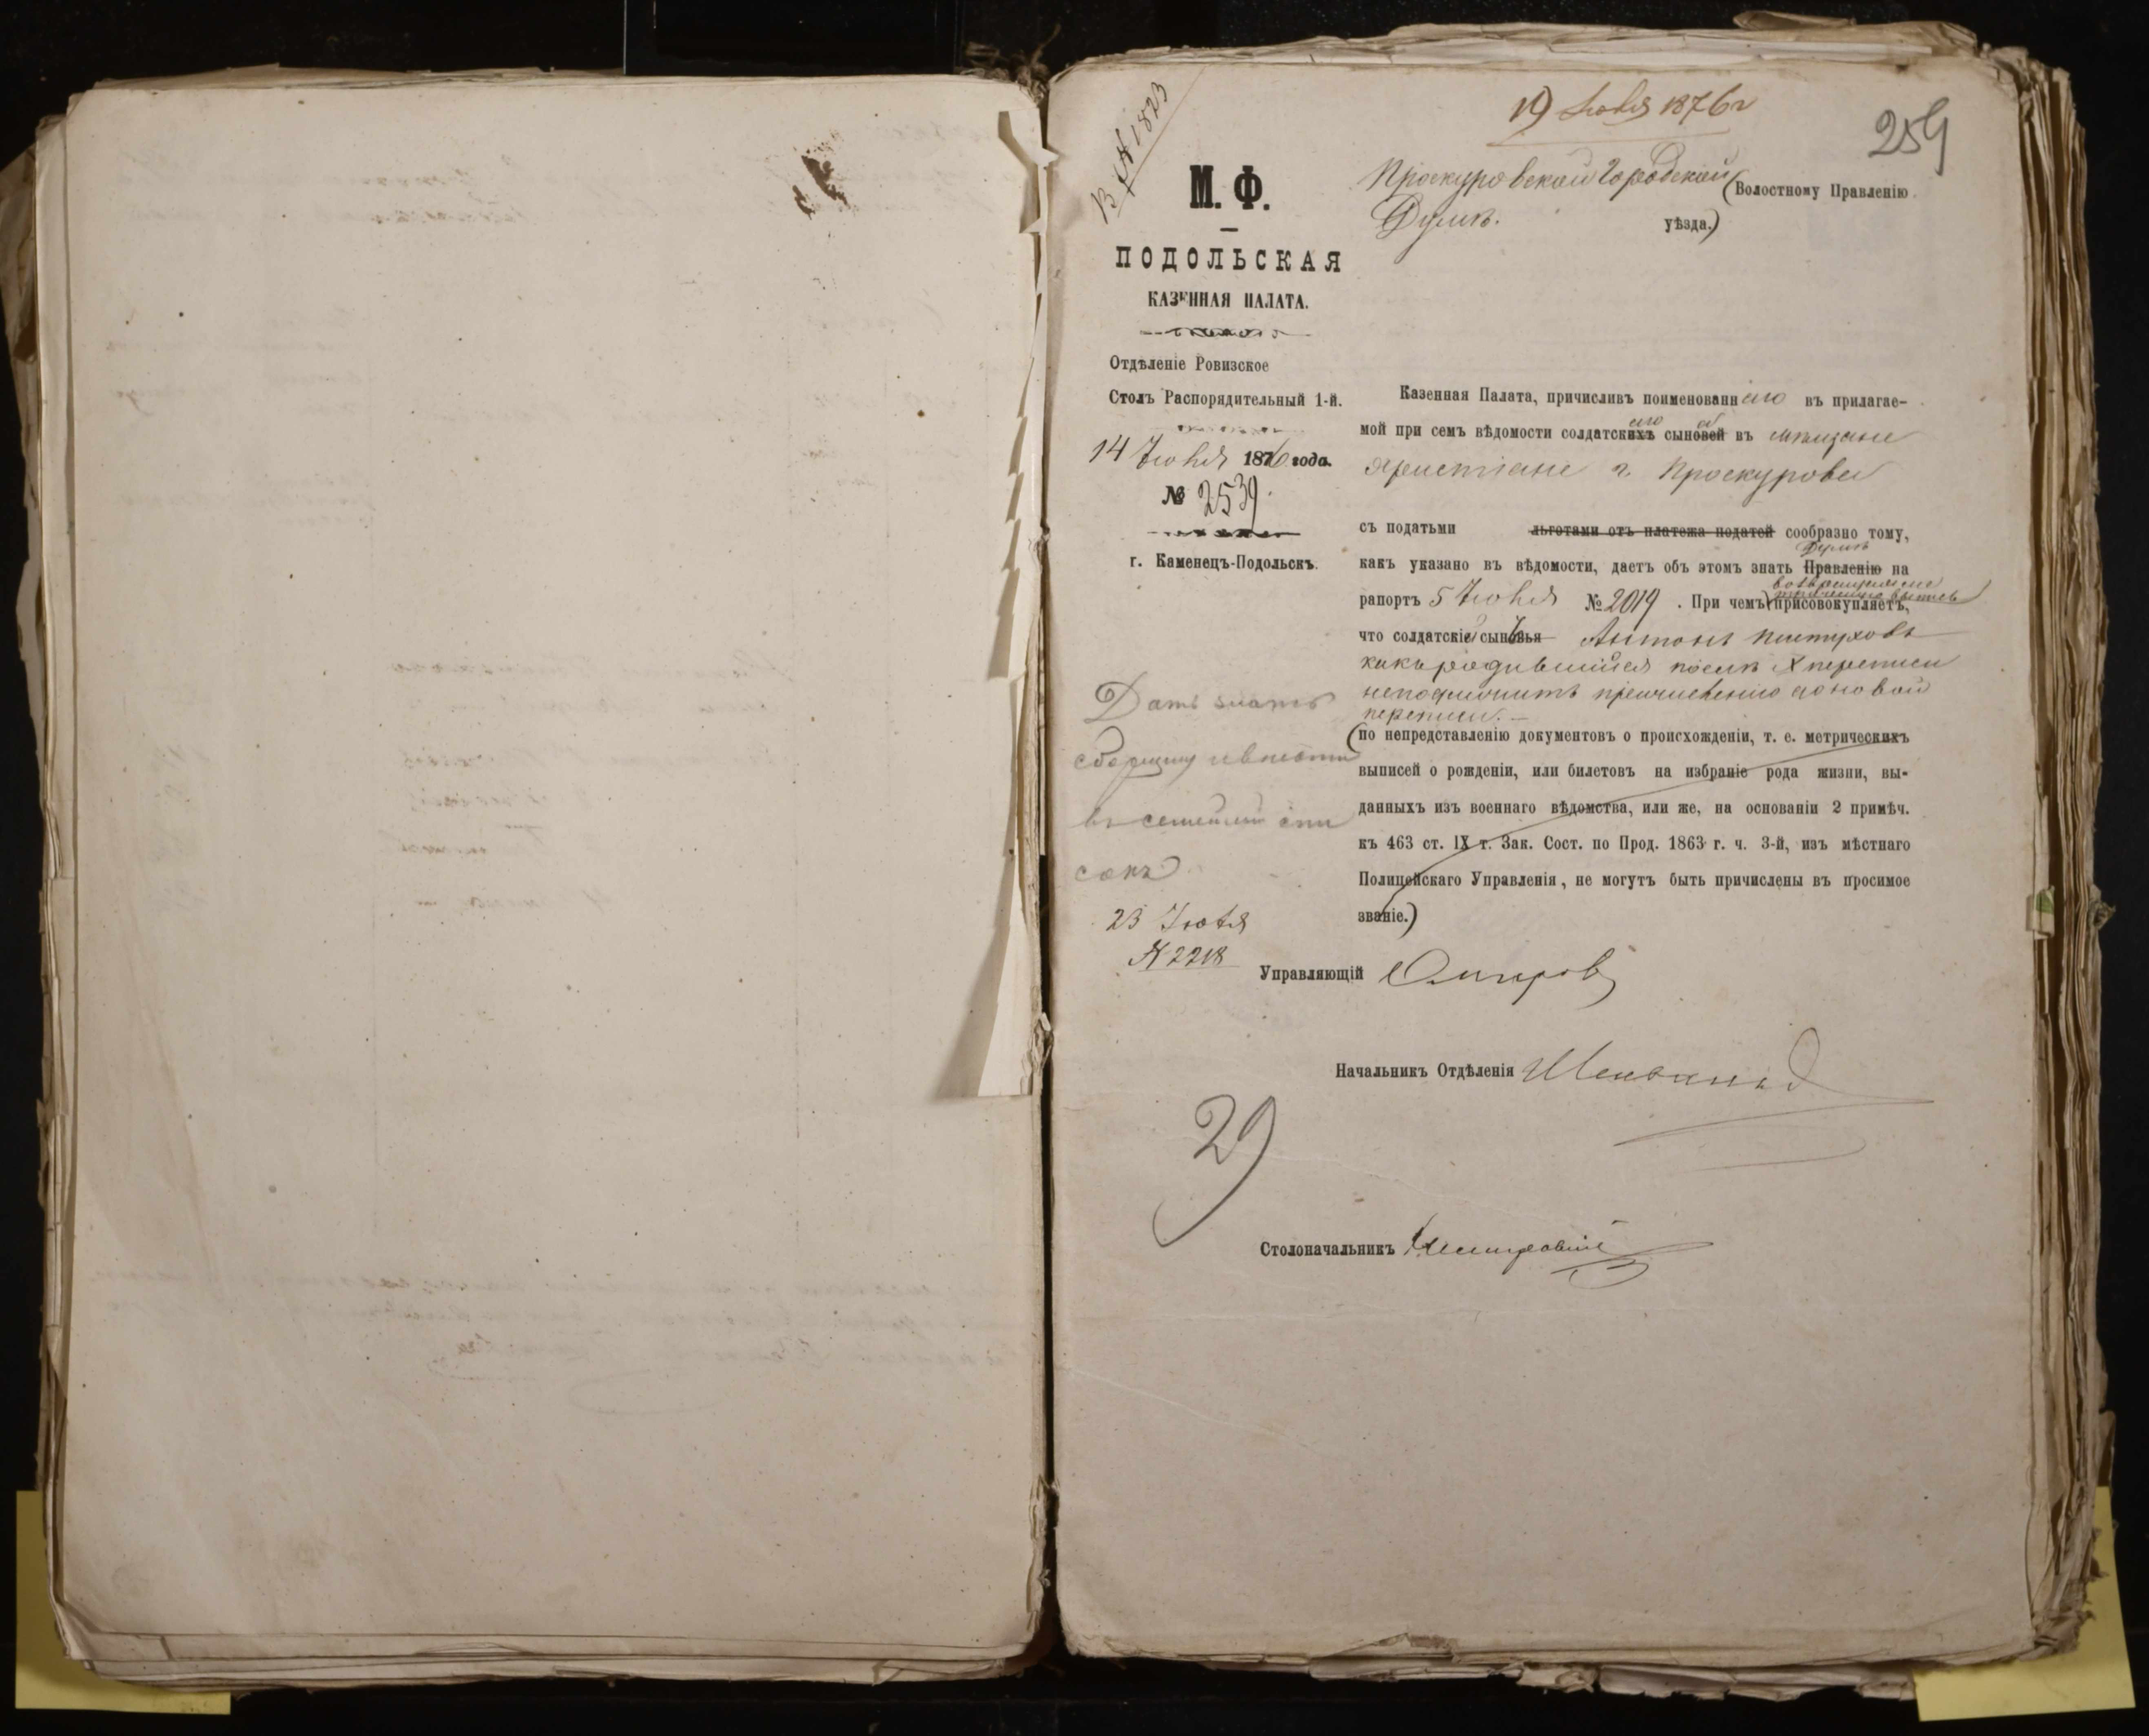 В. № 1823
19 Июля 1876 г
259
М. Ф.
ПОДОЛЬСКАЯ
КАЗЕННАЯ ПАЛАТА.
Отдѣленіе Ровизское
Столъ Распорядительный 1-й.
14 Июля 1876 года.
№ 2539.
г. Каменецъ-Подольскъ.
Проскуровской Городской (Волостному Правленію
Думѣ. уѣзда.)
Казенная Палата, причисливъ поименованнаго въ прилагае-
мой при семъ вѣдомости солдатскихъ аго сыновей а въ мѣщане
христіане г. Проскурова
съ податьми льготами отъ платежа податей сообразно тому,
Думѣ
какъ указано въ вѣдомости, даетъ объ этомъ знать Правленію на
возвращая
рапортъ 5 Июля № 2019. При чемъ присовокупляетъ,
что солдатскіе сыновья Антонъ Пастуховъ
какъ родившийся послѣ X переписи
неподлежитъ причисленію до новой
переписи. —
(по непредставленію документовъ о происхожденіи, т. е. метрическихъ
выписей о рожденіи, или билетовъ на избраніе рода жизни, вы-
данныхъ изъ военнаго вѣдомства, или же, на основаніи 2 примѣч.
къ 463 ст. IX т. Зак. Сост. по Прод. 1863 г. ч. 3-й, изъ мѣстнаго
Полицейскаго Управленія, не могутъ быть причислены въ просимое
званіе.)
Дать знать
сборщику и внести
въ семейный спи
сокъ
23 Июля
№ 2218
Управляющій
Начальникъ Отдѣленія
29
Столоначальникъ